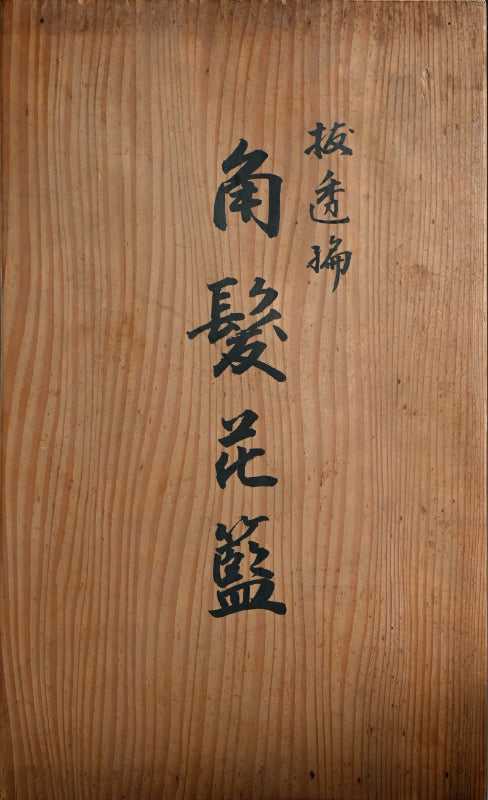 抜透編
角髪花籃